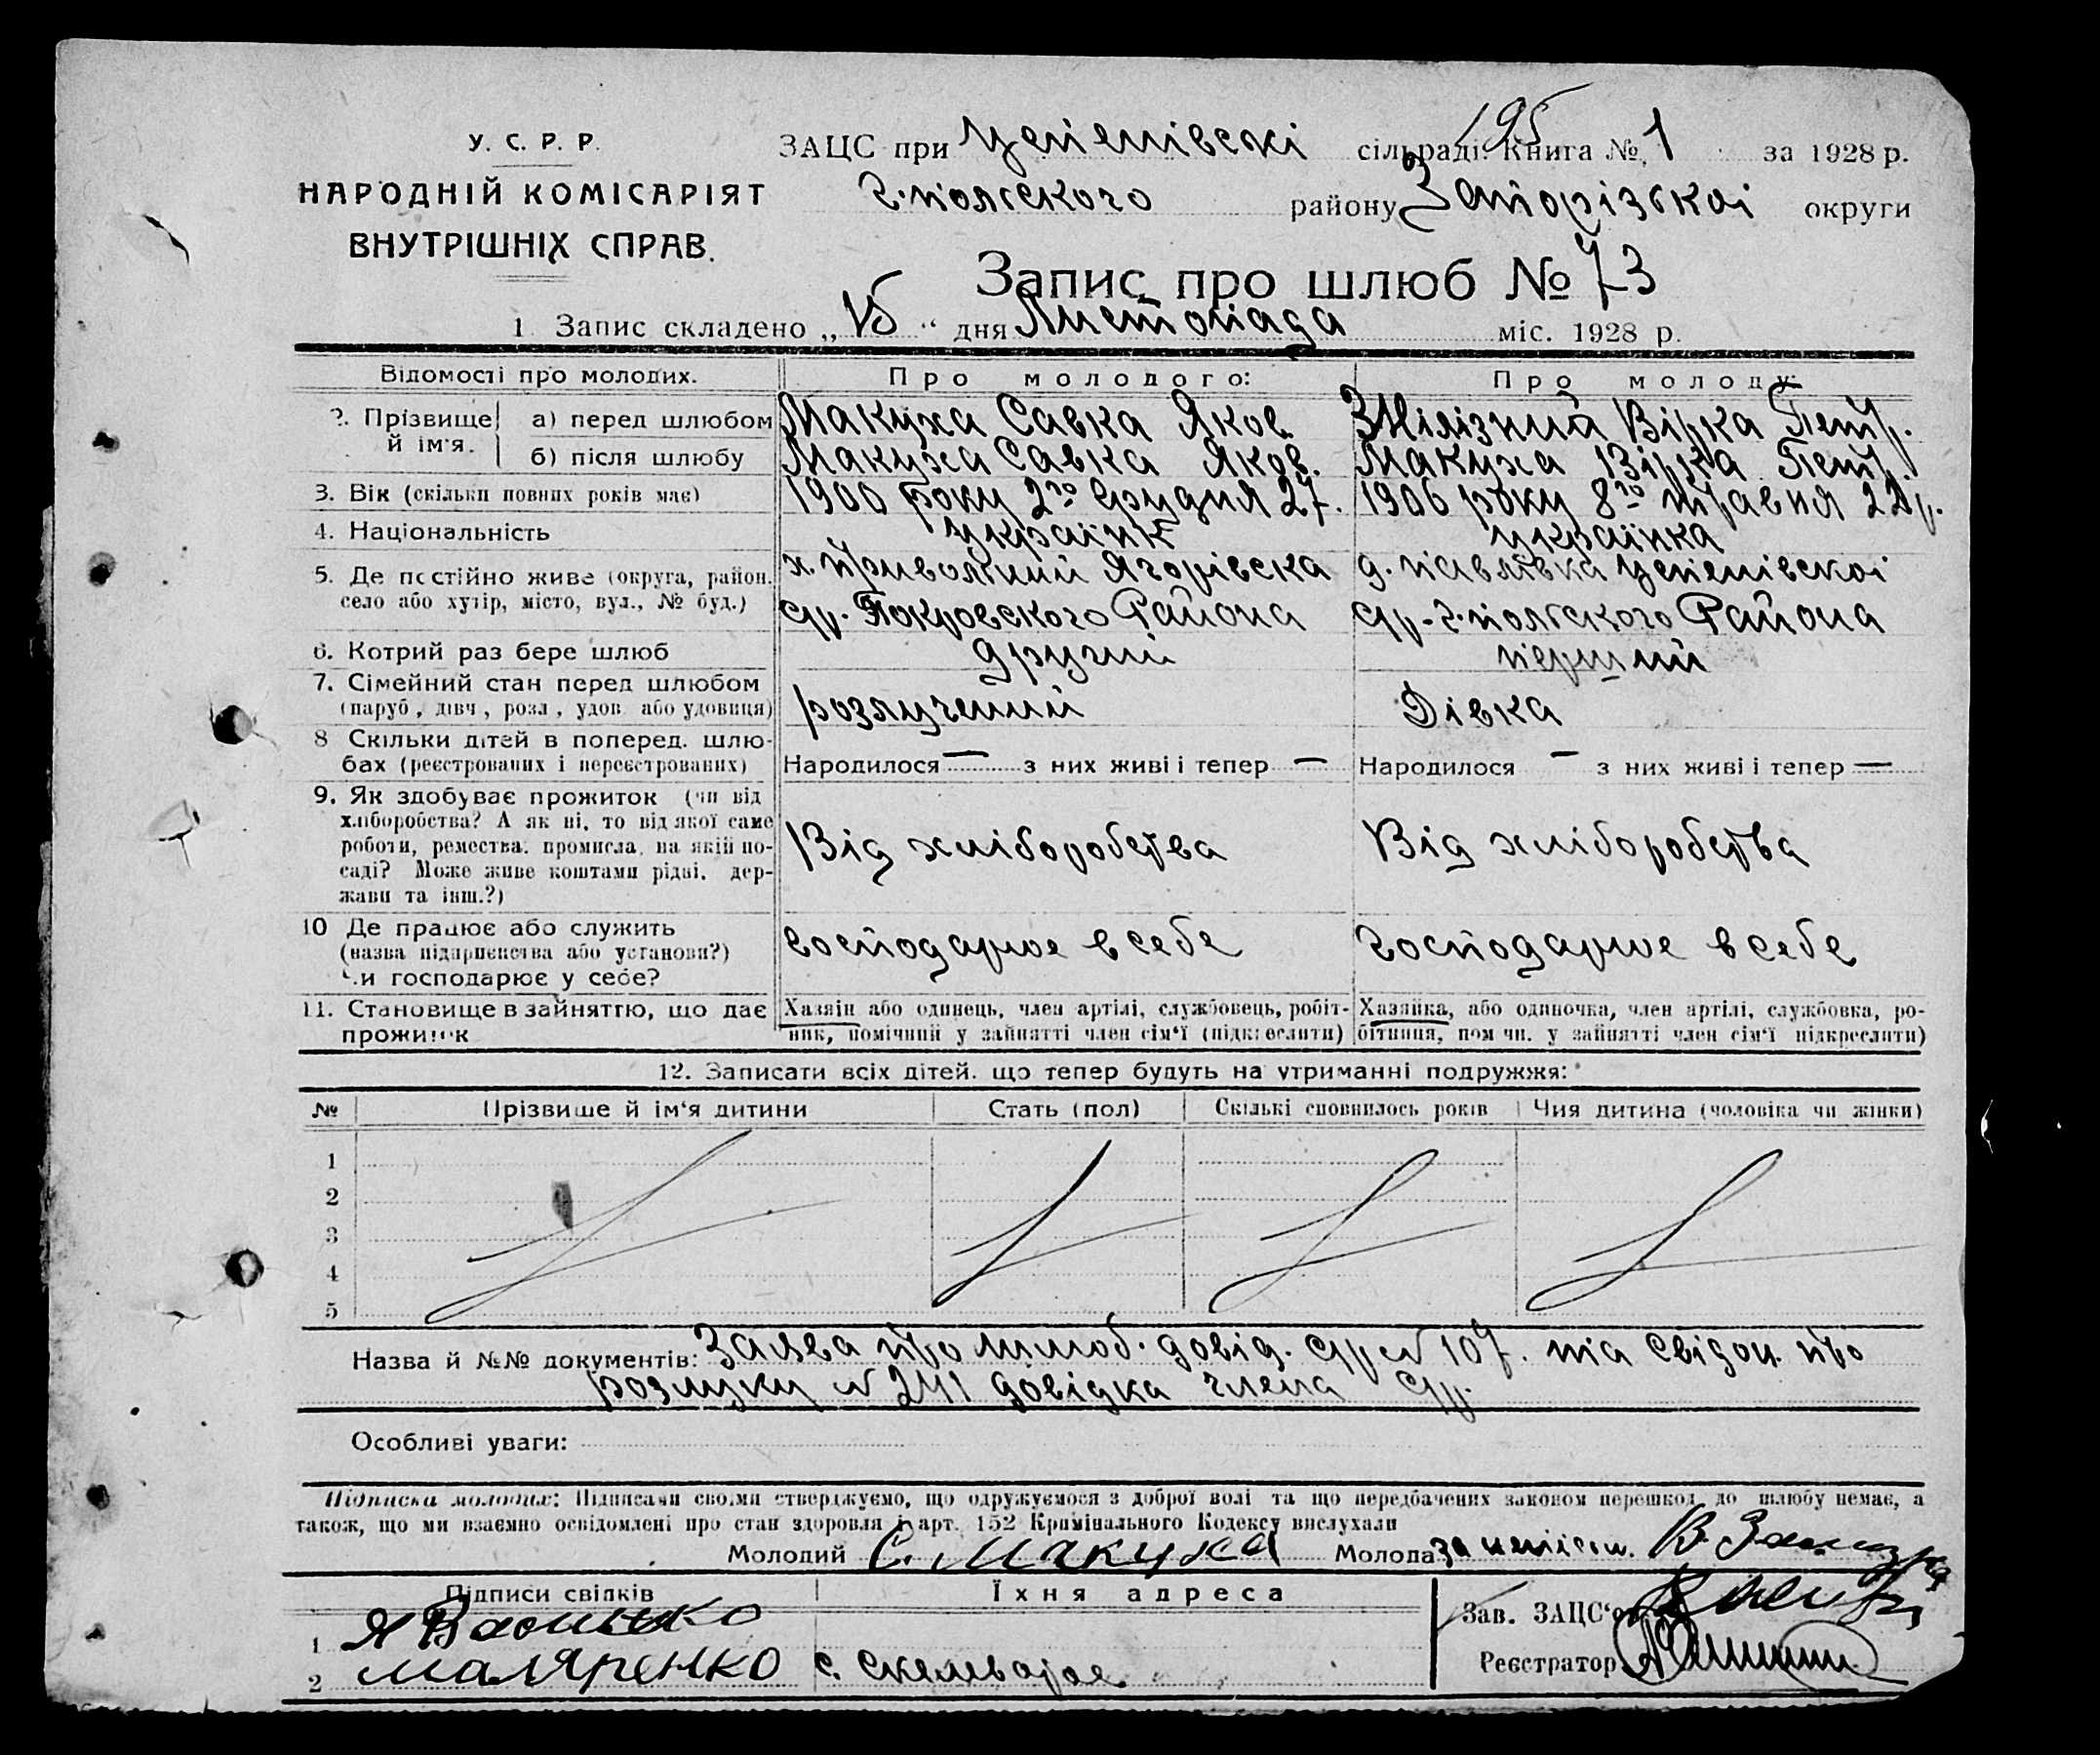 195
У. С. Р. Р.
НАРОДНІЙ КОМІСАРІЯТ
ВНУТРІШНІХ СПРАВ.
ЗАЦС при сільраді. Книга № 1 за 1928 р.
г.польского району Запорізької округи
Запис про шлюб № 73
1 Запис складено „15“ дня Листопада міс. 1928 р.
Відомості про молодих. Про молодого: Про молоду:
2. Прізвище й ім'я. а) перед шлюбом Макуха Савка Яков. Вірка Петр.
б) після шлюбу Макуха Савка Яков. Макуха Вірка Петр.
3. Вік (скільки повних років має) 1900 року 2го Грудня 27. 1906 року 8го травня 22р.
4. Національність українк українка
5. Де постійно живе (округа, район, х. Привольний Ягорівска д. Павлівка
село або хутір, місто, вул., № буд.) с/р. Покровского Района с/р. г.польского Района
6. Котрий раз бере шлюб другий перший
7. Сімейний стан перед шлюбом
(паруб., дівч., розл., удов. або удовиця) розлучений Дівка
8 Скільки дітей в поперед. шлю-
бах (реєстрованих і нереєстрованих) Народилося — з них живі і тепер — Народилося — з них живі і тепер —
9. Як здобуває прожиток (чи від
хліборобства? А як ні, то від якої саме
роботи, ремества, промисла, на якій по-
саді? Може живе коштами рідні, дер-
жави та інш.?) Від хліборобства Від хліборобства
10 Де працює або служить
(назва підприємства або установи?) господарює в себе господарює в себе
Чи господарює у себе?
11. Становище в зайняттю, що дає Хазяїн або одинець, член артілі, службовець, робіт- Хазяйка, або одиночка, член артілі, службовка, ро-
прожиток ник, помічний у зайнятті член сім'ї (підкреслити) бітниця, помічн. у зайнятті член сім'ї підкреслити)
12. Записати всіх дітей, що тепер будуть на утриманні подружжя:
№ Прізвище й ім'я дитини Стать (пол) Скількі сповнилось років Чия дитина (чоловіка чи жінки)
1
2
3
4
5
Назва й №№ документів: Заява про шлюб. довід. с/р № 107. та Свідоц. про
розлуку № 241 довідка члена с/р.
Особливі уваги:
Підписка молодих: Підписами своїми стверджуємо, що одружуємося з доброї волі та що передбачених законом перешкод до шлюбу немає, а
також, що ми взаємно освідомлені про стан здоровля і арт. 152 Кримінального Кодексу вислухали
Молодий С. Макуха Молода за неписм. В.
Підписи свідків Їхня адреса
Зав. ЗАЦС'ом
1 Я
2 Маляренко с.
Реєстратор